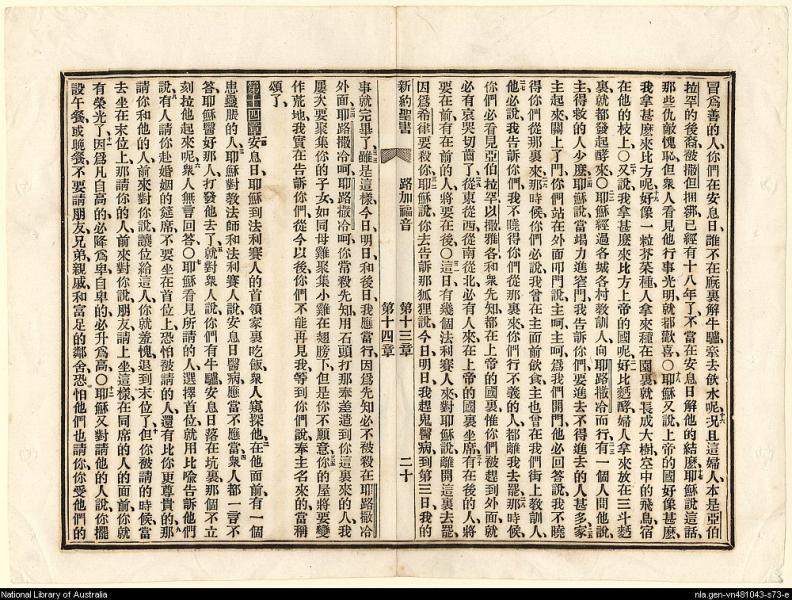 冒爲善的人、你們在安息日、誰不在廐裏解牛驢、牽去飲水呢、況且這婦人、本是亞伯
拉罕的後裔、被撒但捆綁已經有十八年了、不當在安息日解他的結麼、耶穌說這話、
那些仇敵愧恥、但衆人看見他行事光明、就都歡喜○耶穌又說、上帝的國好像甚麼、
我拿甚麼來比方呢、好像一粒芥菜種、人拿來種在園裏、就長成大樹、空中的飛鳥宿
在他的枝上○又說、我拿甚麼來比方上帝的國呢、好比麪酵、婦人拿來放在三斗麪
裏、就都發起酵來○耶穌經過各城各村教訓人、向耶路撒冷而行、有一個人問他說、
主、得救的人少麼、耶穌說、當竭力進窄門、我告訴你們、要進去不得進去的人甚多、家
主起來關上了門、你們站在外面叩門說、主呵、主呵、爲我們開門、他必回答說、我不曉
得你們從那裏來、那時候你們必說、我曾在主面前飲食、主也曾在我們街上教訓人、
他必說、我告訴你們、我不曉得你們從那裏來、你們行不義的人、都離我去罷、那時候、
你們必看見亞伯拉罕、以撒、雅各、和衆先知、都在上帝的國裏、惟你們被趕到外面、就
必有哀哭切齒了、從東從西從南從北、必有人來、在上帝的國裏坐席、有在後的人將
要在前、有在前的人將要在後○這日有幾個法利賽人來對耶穌說、離開這裏去罷、
因爲希律要殺你、耶穌說、你去告訴那狐狸說、今日明日我趕鬼醫病、到第三日我的
新約聖書 路加福音 第十三章 第十四章 二十
事就完畢了、雖是這樣、今日明日和後日、我應當行、因爲先知必不被殺在耶路撒冷
外面、耶路撒冷呵、耶路撒冷呵、你常殺先知、用石頭打那奉差遣到你這裏來的人、我
屢次要聚集你的子女、如同母雞聚集小雞在翅膀下、但是你不願意、你的屋將要變
作荒地、我實在告訴你們、從今以後、你們不能再見我、等到你們說、奉主名來的當稱
頌了、
第十四章 安息日、耶穌到法利賽人的首領家裏吃飯、衆人窺探他、在他面前有一個
患臌脹的人、耶穌對教法師和法利賽人說、安息日醫病、應當不應當、衆人都一言不
答、耶穌醫好那人、打發他去了、就對衆人說、你們有牛驢安息日落在坑裏、那個不立
刻拉他起來呢、衆人無言回答○耶穌看見所請的人選擇首位、就用比喻告訴他們
說、有人請你赴婚姻的筵席、不要坐在首位上、恐怕被請的人、還有比你更尊貴的、那
請你和他的人前來對你說、讓位給這人、你就羞愧退到末位了、但你被請的時候、當
去坐在末位上、那請你的人前來對你說、朋友、請上坐、這樣、在同席的人的面前、你就
有榮光了、因爲凡自高的、必降爲卑、自卑的必升爲高○耶穌又對請他的人說、你擺
設午餐、或晚餐、不要請朋友、兄弟、親戚、和富足的鄰舍、恐怕他們也請你、你受他們的
National Library of Australia
nla.gen-vn481043-s73-e